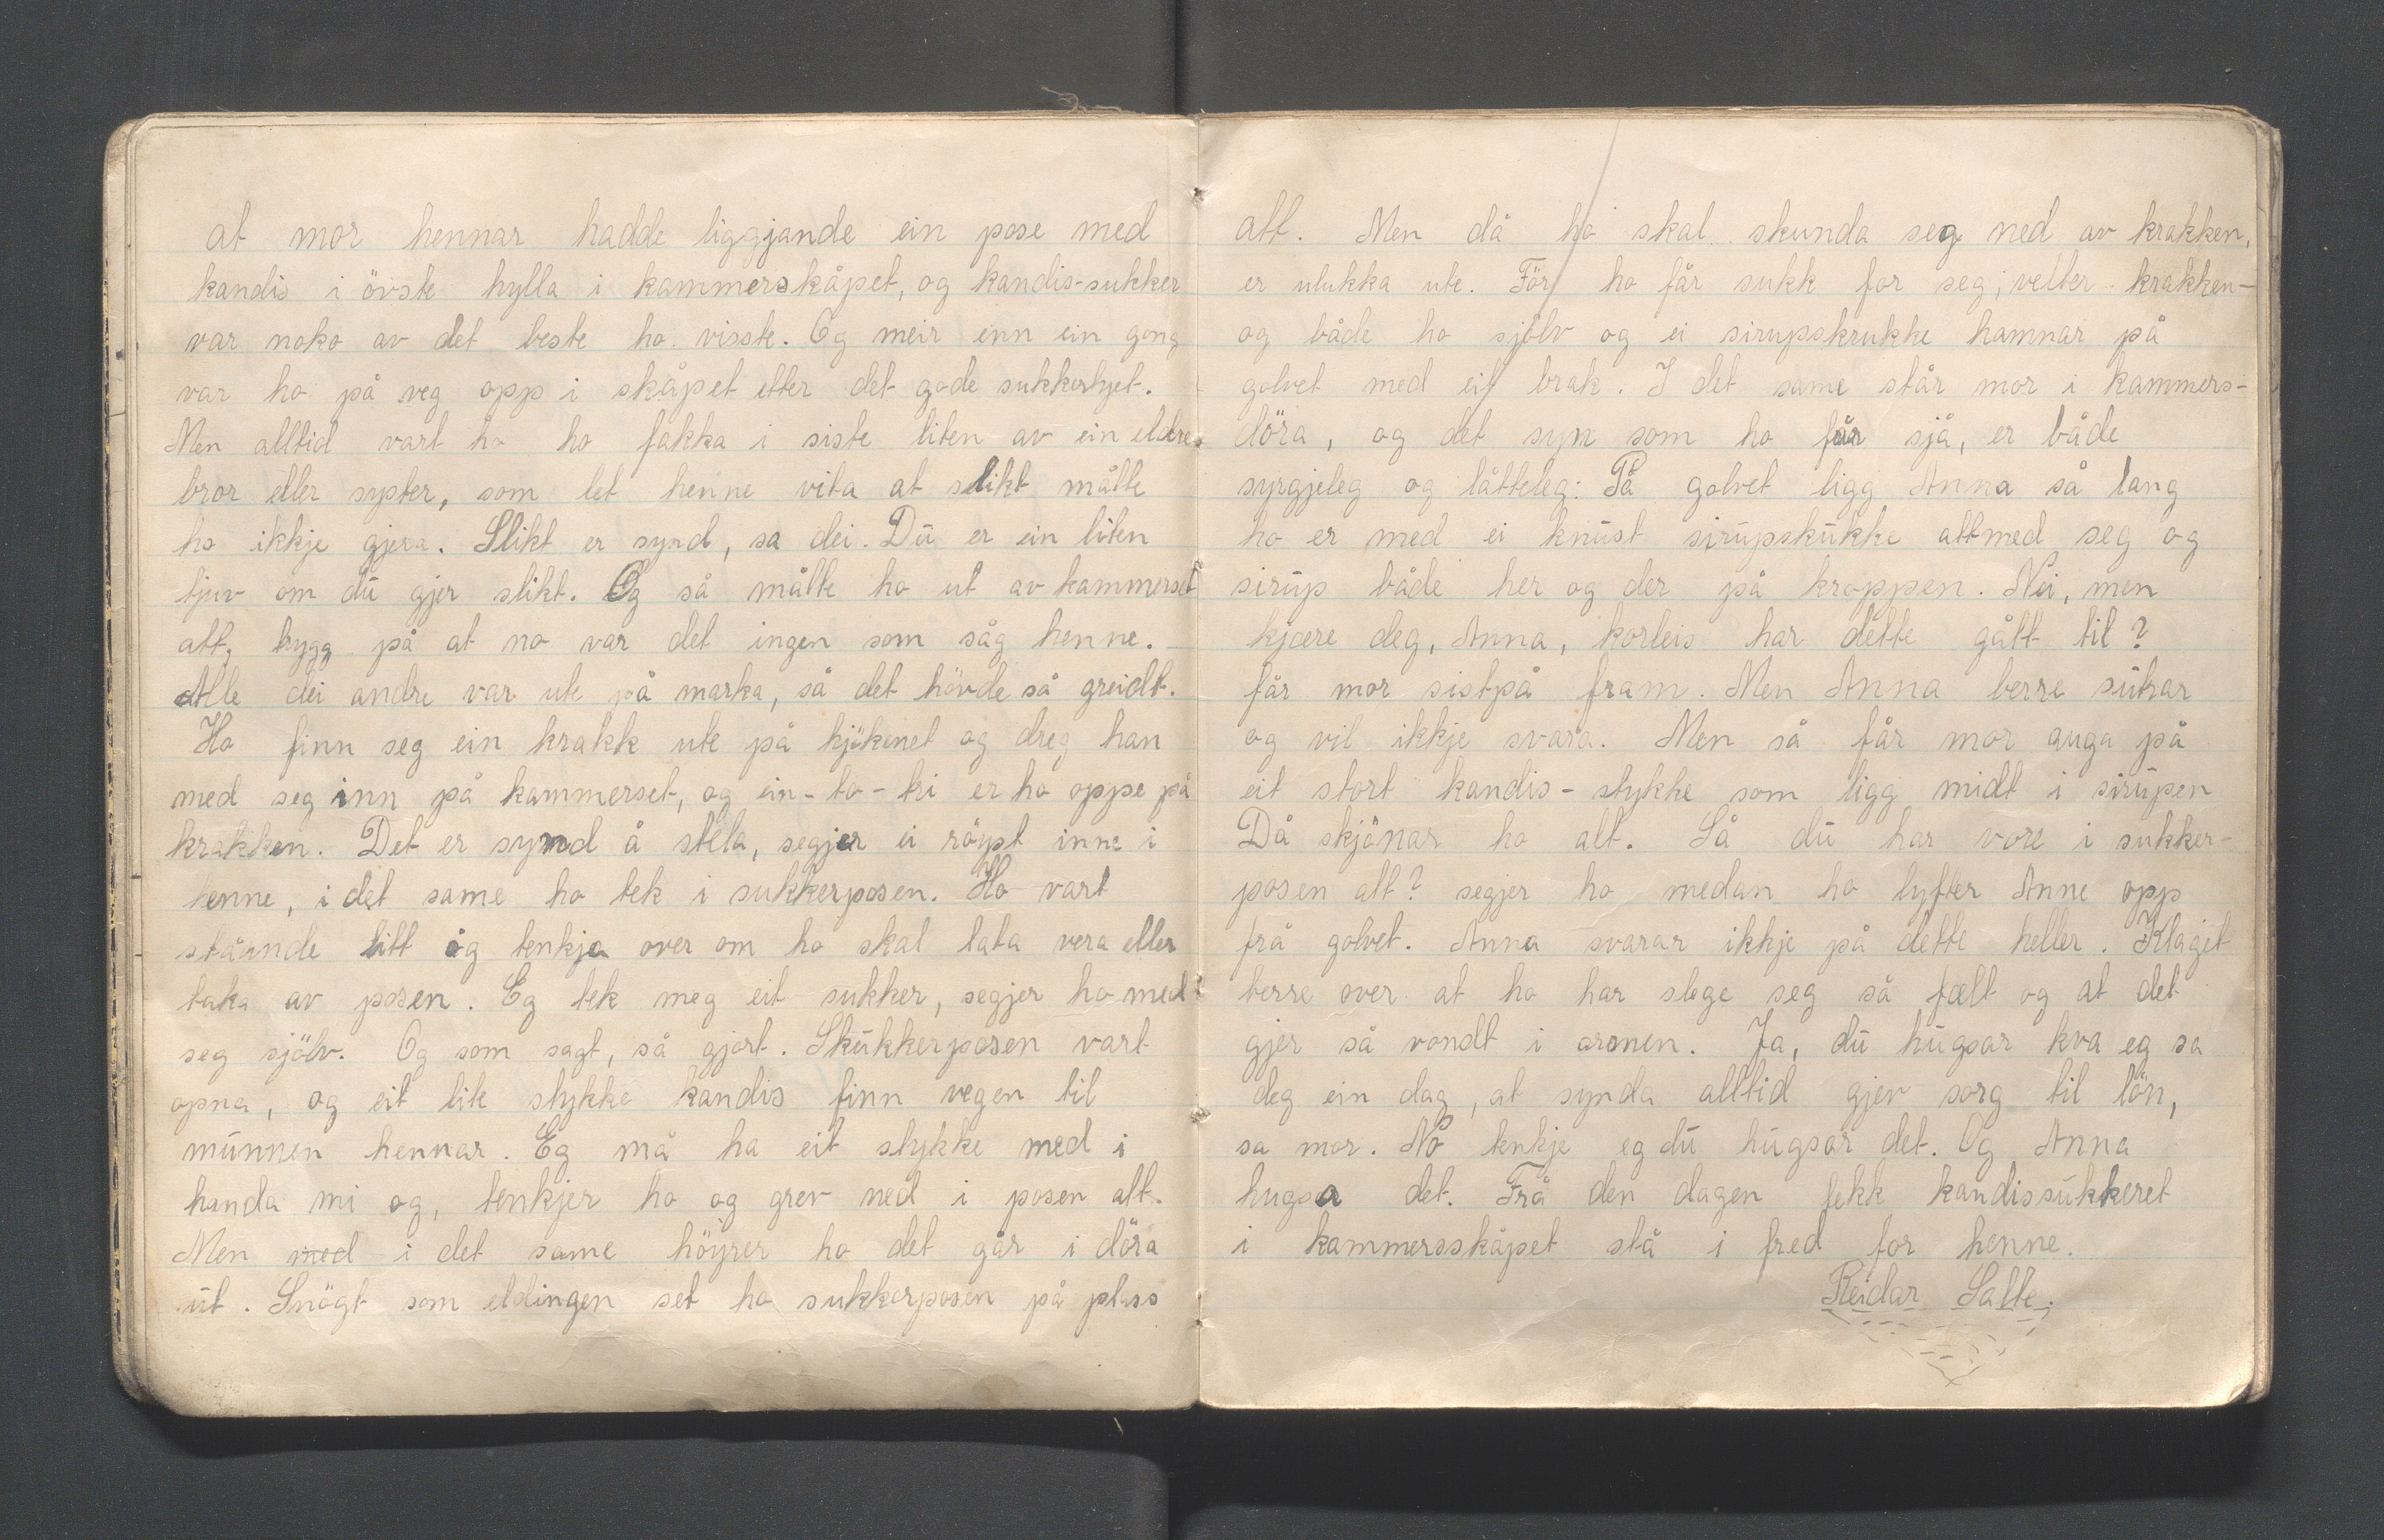 at mor hennar hadde liggjande ein pose med
kandis i övste hylla i kammerskåpet, og kandis-sukker
var noko av det beste ho visste. Og meir enn ein gong
var ho på veg opp i skåpet etter det gode sukkertyet.
Men alltid vart ho ho fakka i siste liten av ein eldre
bror eller syster, som let henne vita at slikt måtte
ho ikkje gjera. Slikt er synd, sa dei. Du er ein liten
tjuv om du gjer slikt. Og så måtte ho ut av kammerset
att, trygg på at no var det ingen som såg henne.
Alle dei andre var ute på marka, så det hövde så greidt.
Ho finn seg ein krakk ute på kjökenet og dreg han
med seg inn på kammerset, og ein-to-tri er ho oppe på
krakken. Det er synd å stela, segjer ei röyst inne i
henne, i det same ho tek i sukkerposen. Ho vart
ståande litt og tenkja over om ho skal lata vera eller
taka av posen. Eg tek meg eit sukker, segjer ho med
seg sjölv. Og som sagt, så gjort. Skukkerposen vart
opna, og eit lite stykke kandis finn vegen til
munnen hennar. Eg må ha eit stykke med i
handa mi og, tenkjer ho og grev ned i posen att.
Men med i det same höyrer ho det går i döra
ut. Snögt som eldingen set ho sukkerposen på plass
att. Men då ho skal skunda seg ned av krakken,
er ulukka ute. För ho får sukk for seg, velter krakken-
og både ho sjölv og ei sirupskrukke hamnar på
golvet med eit brak. I det same står mor i kammers-
döra, og det syn som ho får sjå, er både
syrgjeleg og låtteleg: På golvet ligg Anna så lang
ho er med ei knust sirupskukke attmed seg og
sirup både her og der på kroppen. Nei, men
kjære deg, Anna, korleis har dette gått til?
får mor sistpå fram. Men Anna berre sutrar
og vil ikkje svara. Men så får mor auga på
eit stort kandis-stykke som ligg midt i sirupen
Då skjönar ho alt. Så du har vore i sukker-
posen att? segjer ho medan ho lyfter Anne opp
frå golvet. Anna svarar ikkje på dette heller. Klaget
berre over at ho har slege seg så fælt og at det
gjer så vondt i armen. Ja, du hugsar kva eg sa
deg ein dag, at synda alltid gjev sorg til lön,
sa mor. No tenkje eg du hugsar det. Og Anna
hugsa det. Frå den dagen fekk kandissukkeret
i kammersskåpet stå i fred for henne.
Reidar Salte.